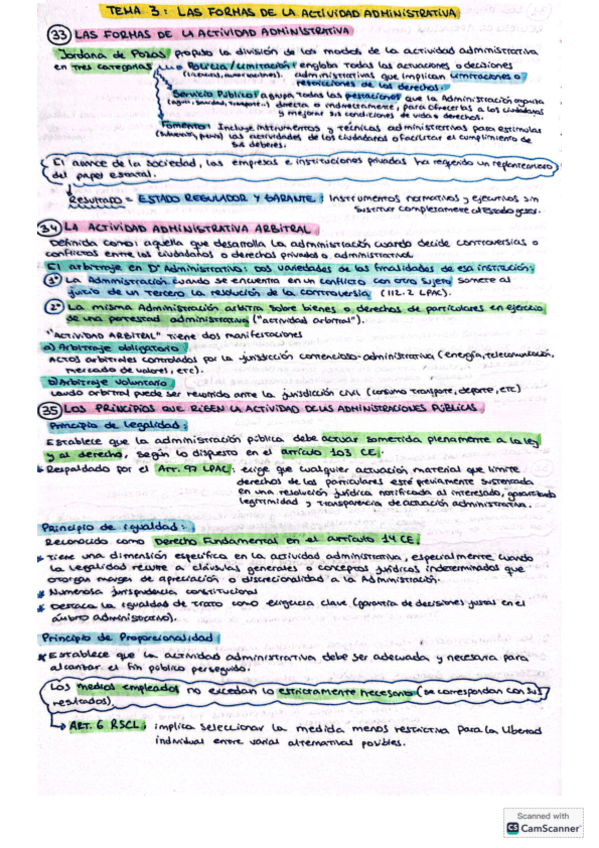 TEMA 3: LAS FORMAS DE LA ACTIVIDAD ADMINISTRATIVA
33 LAS FORMAS DE LA ACTIVIDAD ADMINISTRATIVA
Jordana de Pozas propuso la división de los modos de la actividad administrativa
en tres categorías Policía/Limitación: engloba todas las actuaciones o decisiones
(licencias, autorizaciones). administrativas que implican limitaciones o
restricciones de los derechos.
Servicio Público: agrupa todas las prestaciones que la Administración organiza
directa o indirectamente, para ofrecerlas a los ciudadanos
y mejorar sus condiciones de vida o derechos.
Fomento: Incluye instrumentos y técnicas administrativas para estimular
las actividades de los ciudadanos o facilitar el cumplimiento de
sus deberes.
El avance de la sociedad, las empresas e instituciones privadas ha requerido un replanteamiento
del papel estatal.
Resultado = ESTADO REGULADOR Y GARANTE: Instrumentos normativos y ejecutivos sin
sustituir completamente al Estado gestor.
34 LA ACTIVIDAD ADMINISTRATIVA ARBITRAL
Definida como: aquella que desarrolla la administración cuando decide controversias o
conflictos entre los ciudadanos o derechos privados o administrativos.
El arbitraje en Dº Administrativo: dos variedades de las finalidades de esa institución:
1º La Administración cuando se encuentra en un conflicto con otro sujeto somete al
juicio de un tercero la resolución de la controversia (112.2 LPAC).
2º La misma Administración arbitra sobre bienes o derechos de particulares en ejercicio
de una potestad administrativa ("actividad arbitral").
"ACTIVIDAD ARBITRAL" tiene dos manifestaciones
a) Arbitraje obligatorio
Actos arbitrales controlados por la jurisdicción contencioso-administrativa (energía, telecomunicación,
mercado de valores, etc).
b) Arbitraje voluntario
Laudo arbitral puede ser recurrido ante la jurisdicción civil (consumo transporte, deporte, etc)
35 LOS PRINCIPIOS QUE RIGEN LA ACTIVIDAD DE LAS ADMINISTRACIONES PÚBLICAS
Principio de legalidad:
Establece que la administración pública debe actuar sometida plenamente a la ley
y al derecho, según lo dispuesto en el artículo 103 CE.
Respaldado por el Art. 97 LPAC: exige que cualquier actuación material que limite
derechos de los particulares esté previamente sustentada
en una resolución jurídica notificada al interesado, garantizando
legitimidad y transparencia de actuación administrativa.
Principio de igualdad:
Reconocido como Derecho Fundamental en el artículo 14 CE.
Tiene una dimensión específica en la actividad administrativa, especialmente cuando
la legalidad recurre a cláusulas generales o conceptos jurídicos indeterminados que
otorgan margen de apreciación o discrecionalidad a la Administración.
Numerosa jurisprudencia constitucional
Destaca la igualdad de trato como exigencia clave (garantía de decisiones justas en el
ámbito administrativo).
Principio de Proporcionalidad:
Establece que la actividad administrativa debe ser adecuada y necesaria para
alcanzar el fin público perseguido.
Los medios empleados no excedan lo estrictamente necesario (se correspondan con sus
resultados).
ART. 6 RSCL: implica seleccionar la medida menos restrictiva para la libertad
individual entre varias alternativas posibles.
Scanned with
CS CamScanner